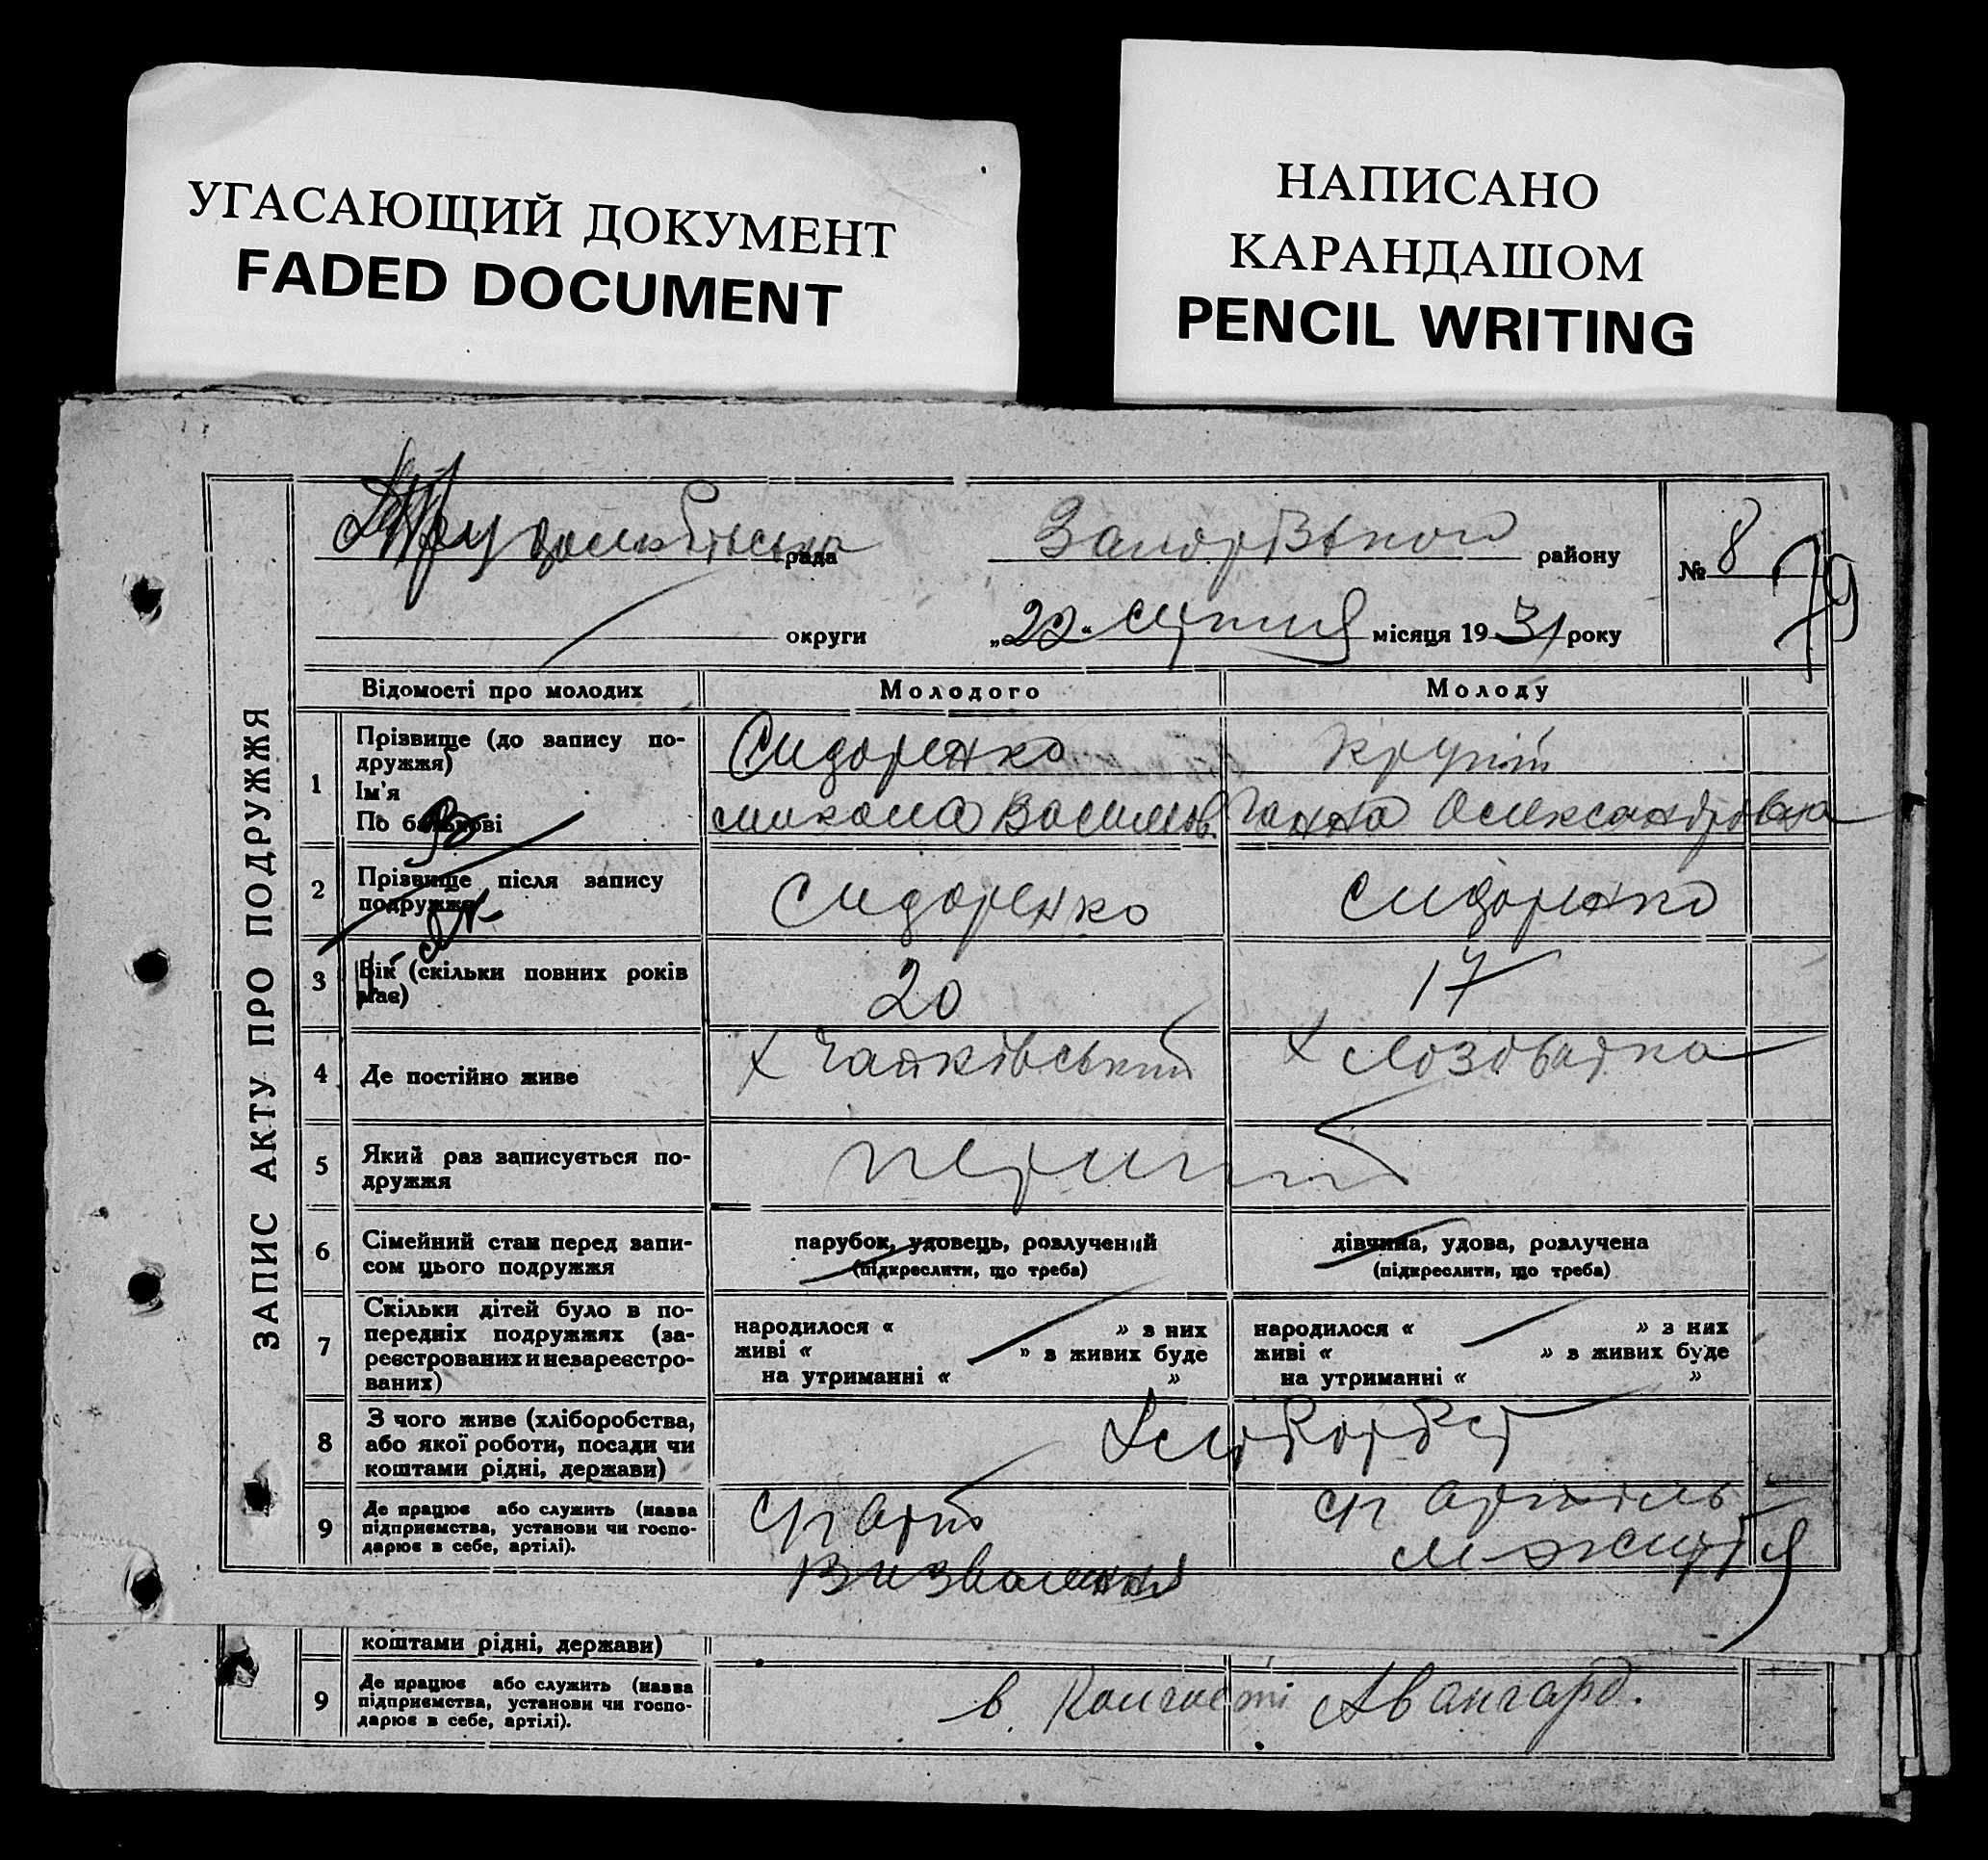 УГАСАЮЩИЙ ДОКУМЕНТ
FADED DOCUMENT
НАПИСАНО
КАРАНДАШОМ
PENCIL WRITING
ЗАПИС АКТУ ПРО ПОДРУЖЖЯ
рада
району
№ 8
79
округи „22“ місяця 1931 року
Відомості про молодих Молодого Молоду
1 Прізвище (до запису по-
дружжя)
Ім'я
По батькові
Сидоренко
Микола Васильов.
Ганна Олександровна
2 Прізвище після запису
подружжя
Сидоренко Сидоренко
3 Вік (скільки повних років
має)
20 17
4 Де постійно живе
х Чайківський х Лозоватка
5 Який раз записується по-
дружжя
перший
6 Сімейний стан перед запи-
сом цього подружжя
парубок, удовець, розлучений
(підкреслити, що треба)
дівчина, удова, розлучена
(підкреслити, що треба)
7 Скільки дітей було в по-
передніх подружжях (за-
реєстрованих и незареєстро-
ваних)
народилося « » з них
живі « » з живих буде
на утриманні « »
народилося « » з них
живі « » з живих буде
на утриманні « »
8 З чого живе (хліборобства,
або якої роботи, посади чи
коштами рідні, держави)
9 Де працює або служить (назва
підприємства, установи чи госпо-
дарює в себе, артілі).
с/г арт с/г артіль
Визволення
коштами рідні, держави)
9 Де працює або служить (назва
підприємства, установи чи госпо-
дарює в себе, артілі).
в. Колгоспі Авангард.